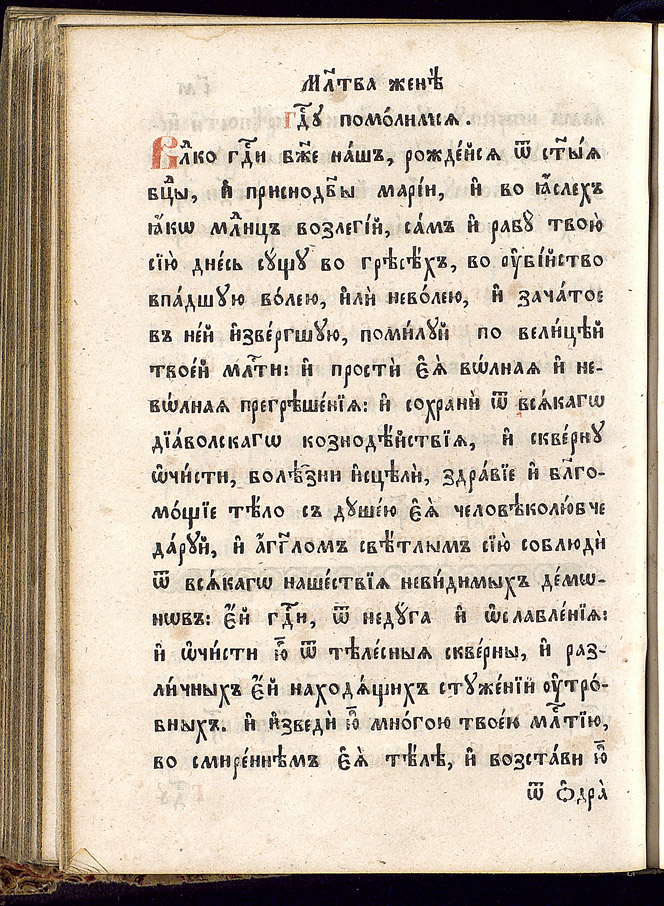 Мл҃тва женѣ̀
Гдⷭ҇ꙋ помо́лимсѧ.
Влⷣко гдⷭ҇и бж҃е на́шъ, рожде́йсѧ ѿ ст҃ы́ѧ
бц҃ы, и҆ приснодв҃ы марі́и, и҆ во ꙗ҆́слехъ
ꙗ҆́кѡ млⷣнцъ возлегі́й, са́мъ и҆ рабꙋ̀ твою̀
сїю̀ дне́сь сꙋ́щꙋ во грѣсѣ́хъ, во ᲂу҆бі́йство
впа́дшꙋю во́лею, и҆лѝ нево́лею, и҆ зача́тое
въ не́й и҆зве́ргшꙋю, поми́лꙋй по вели́цѣй
твое́й млⷭ҇ти: и҆ простѝ є҆ѧ̀ вѡ́лнаѧ и҆ не-
вѡ́лнаѧ прегрѣше́нїѧ: и҆ сохранѝ ѿ всѧ́кагѡ
дїа́волскагѡ кознодѣ́йствїѧ, и҆ скве́рнꙋ
ѡ҆чи́сти, болѣ́зни и҆сцѣлѝ, здра́вїе и҆ бл҃го-
мо́щїе тѣ́ло съ дꙋше́ю є҆ѧ̀ человѣколю́бче
да́рꙋй, и҆ а҆́гг҃ломъ свѣ́тлымъ сїю̀ соблюдѝ
ѿ всѧ́кагѡ наше́ствїѧ неви́димыхъ де́мѡ-
нѡвъ: є҆́й гдⷭ҇и, ѿ недꙋ́га и҆ ѡ҆слабле́нїѧ:
и҆ ѡ҆чи́сти ю҆̀ ѿ тѣле́сныѧ скве́рны, и҆ раз-
ли́чныхъ є҆́й находѧ́щихъ стꙋже́нїй ᲂу҆тро́-
бныхъ. и҆ и҆зведѝ ю҆̀ мно́гою твое́ю млⷭ҇тїю,
во смире́ннѣмъ є҆ѧ̀ тѣ́лѣ, и҆ возста́ви ю҆̀
ѿ ѻ҆дра̀